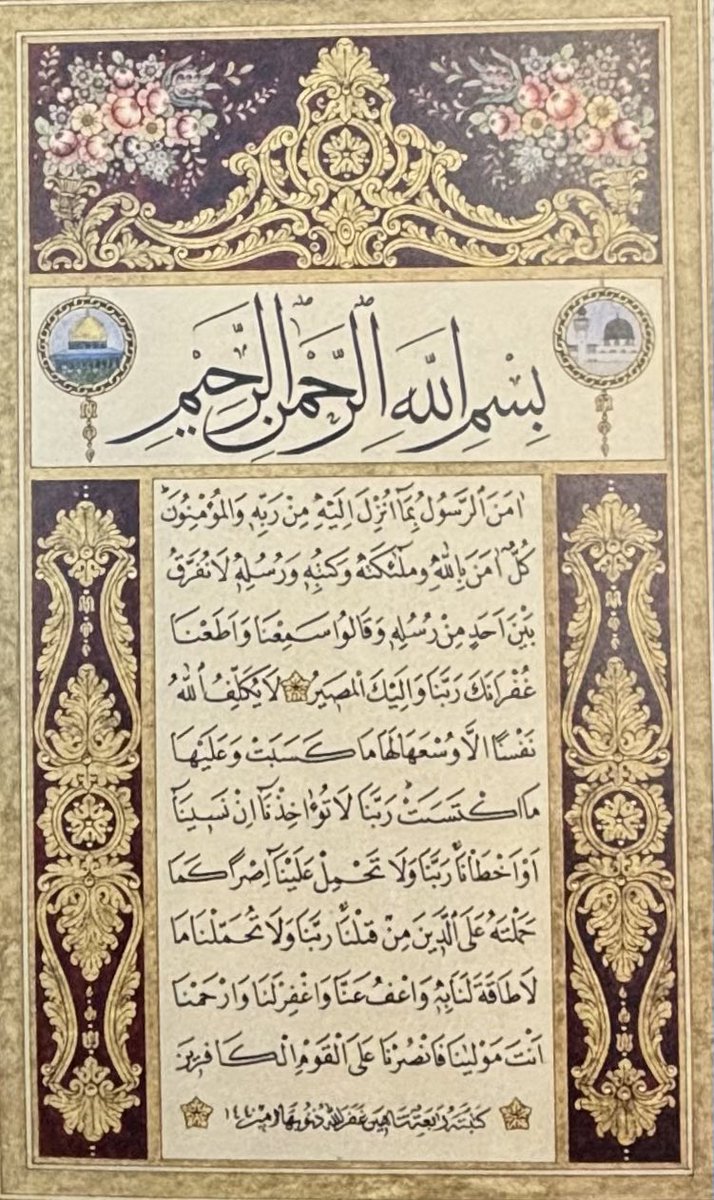 بِسْمِ اللهِ الرَّحْمٰنِ الرَّحِيمِ
اٰمَنَ الرَّسُولُ بِمَٓا اُنْزِلَ اِلَيْهِ مِنْ رَبِّهٖ وَالْمُؤْمِنُونَۜ
كُلٌّ اٰمَنَ بِاللهِ وَمَلٰٓئِكَتِهٖ وَكُتُبِهٖ وَرُسُلِهٖ لَا نُفَرِّقُ
بَيْنَ اَحَدٍ مِنْ رُسُلِهٖ وَقَالُوا سَمِعْنَا وَاَطَعْنَا
غُفْرَانَكَ رَبَّنَا وَاِلَيْكَ الْمَصِيرُ لَا يُكَلِّفُ اللهُ
نَفْسًا اِلَّا وُسْعَهَا لَهَا مَا كَسَبَتْ وَعَلَيْهَا
مَا اكْتَسَبَتْۜ رَبَّنَا لَا تُؤَاخِذْنَٓا اِنْ نَسِينَٓا
اَوْ اَخْطَاْنَاۚ رَبَّنَا وَلَا تَحْمِلْ عَلَيْنَٓا اِصْرًا كَمَا
حَمَلْتَهُ عَلَى الَّذِينَ مِنْ قَبْلِنَاۚ رَبَّنَا وَلَا تُحَمِّلْنَا مَا
لَا طَاقَةَ لَنَا بِهٖۚ وَاعْفُ عَنَّا وَاغْفِرْ لَنَا وَارْحَمْنَا
اَنْتَ مَوْلٰينَا فَانْصُرْنَا عَلَى الْقَوْمِ الْكَافِرِينَ
كتبته رابعة غفر الله ذنوبها امين